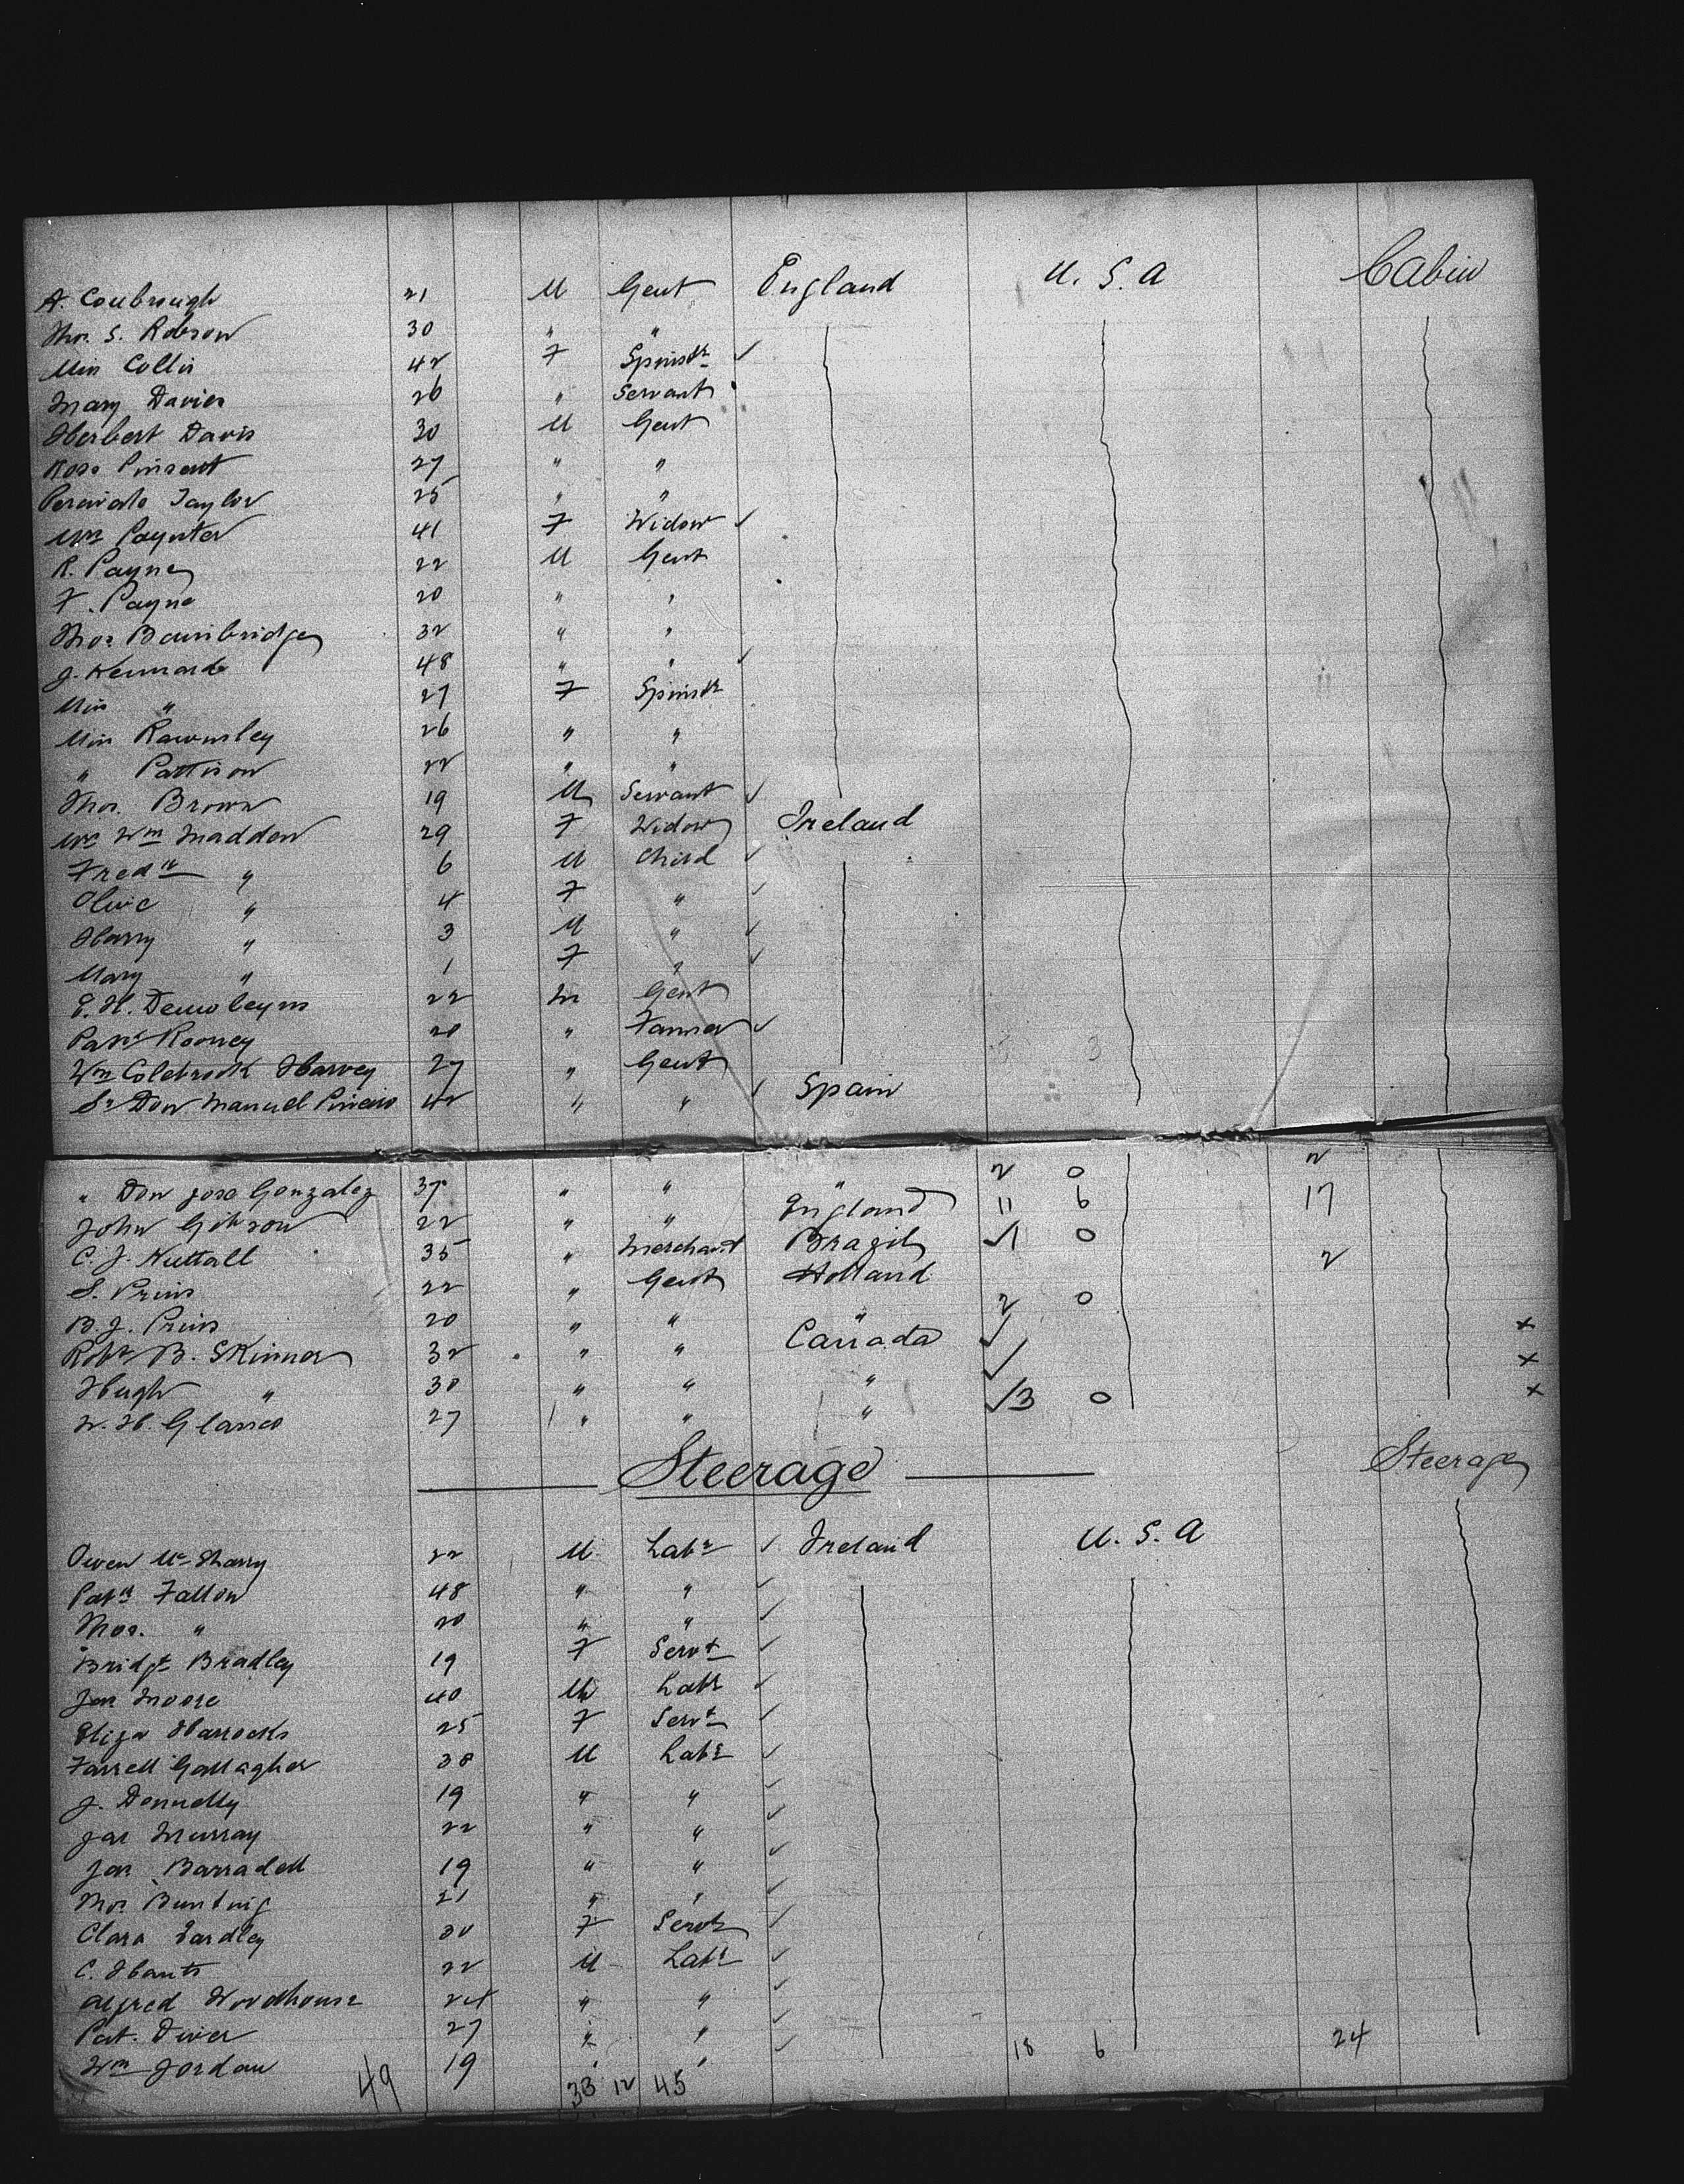 A. Coubrough 21 M Gent England U. S. A Cabin
Thos. S. Robson 30 " "
Miss Collis 42 F Spinstr ✓
Mary Davies 26 " Servant
Herbert Davis 30 M Gent
Ross Pinsent 27 " "
Taylor 25 " "
Mrs Paynter 41 F Widow ✓
R. Payne 22 M Gent
F. Payne 20 " "
Thos Bainbridge 32 " "
J. Kennard 48 " " ✓
Miss " 27 F Spinstr
Miss Rawnsley 26 " "
" Pattison 22 " "
Thos. Brown 19 M Servant ✓
Mrs Wm Madden 29 F Widow Ireland
Fredk " 6 M Child ✓
Olive " 4 F " ✓
Harry " 3 M " ✓
Mary " 1 F " ✓
E. H. Demoleyns 22 M Gent
Patk Rooney 20 " Farmer ✓
Wm Colebrook Harvey 27 " Gent
Sr Don Manuel Pineiro 42 " " ✓ Spain
" Don Jose Gonzalez 37 " " " 2 0 2
John Gibson 22 " " England 11 6 17
C. J. Nuttall 35 " Merchant Brazil ✓1 0
S. Prins 22 " Gent Holland 2
B. J. Prins 20 " " " 2 0
Robt B. Skinner 32 " " Canada ✓ x
Hugh " 30 " " " ✓ x
W. H. Glassco 27 " " " ✓3 0 x
Steerage Steerage
Owen Mc Sharry 22 M Labr ✓ Ireland U. S. A
Patk Fallon 48 " " ✓
Thos. " 20 " " ✓
Bridgt Bradley 19 F Servt ✓
Jas Moore 40 M Labr ✓
Eliza Harrocks 25 F Servt ✓
Farrell Gallagher 38 M Labr ✓
J. Donnelly 19 " " ✓
Jas Murray 22 " " ✓
Jas Barradell 19 " " ✓
Thos Bunting 21 " " ✓
Clara Yardley 30 F Servt ✓
C. Hants 22 M Labr ✓
Alfred Woodhouse 24 " " ✓
Pat. Diver 27 " " ✓
Wm Jordan 19 " " ✓ 18 6 24
49 33 12 45